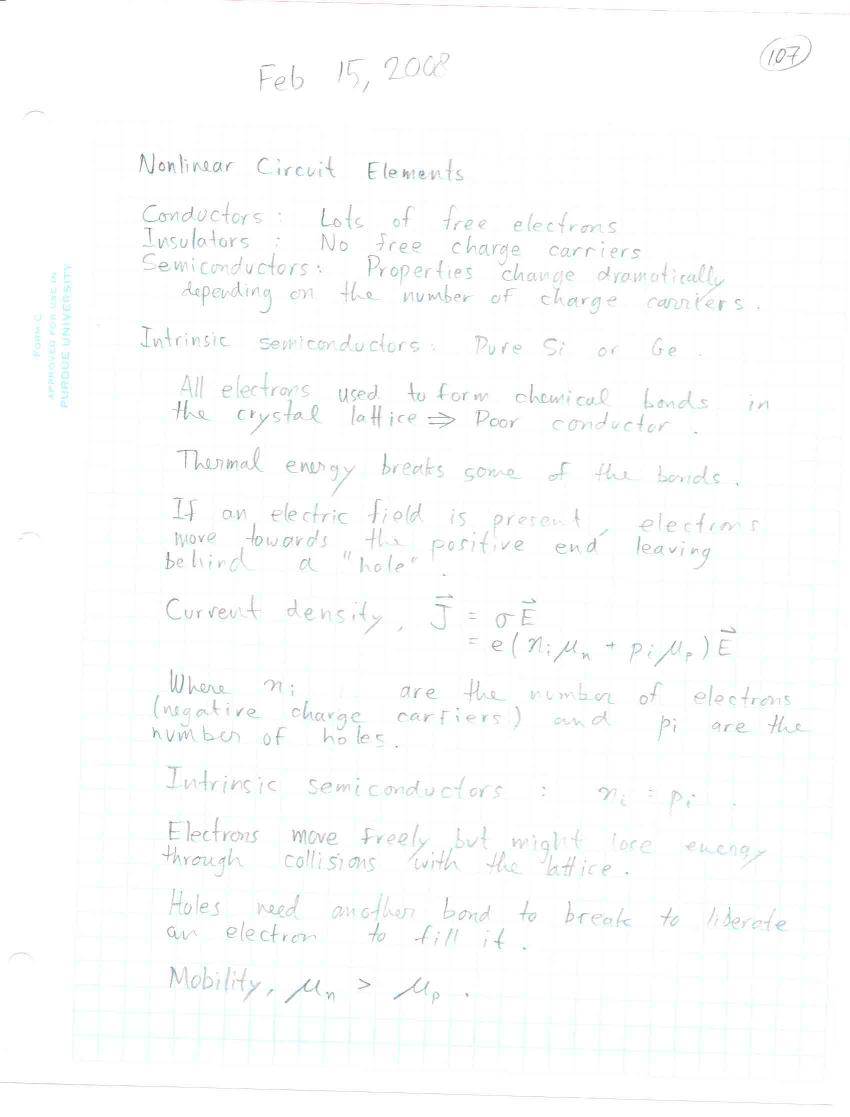 107
Feb 15, 2008
Nonlinear Circuit Elements
Conductors : Lots of free electrons
Insulators : No free charge carriers
Semiconductors : Properties change dramatically
depending on the number of charge carriers .
FORM C
APPROVED FOR USE IN
PURDUE UNIVERSITY
Intrinsic semiconductors : Pure Si or Ge .
All electrons used to form chemical bonds in
the crystal lattice ⇒ Poor conductor .
Thermal energy breaks some of the bonds .
If an electric field is present , electrons
move towards the positive end leaving
behind a "hole" .
Current density , J⃗ = σE⃗
= e ( nᵢ μₙ + pᵢ μₚ ) E⃗
Where nᵢ are the number of electrons
(negative charge carriers) and pi are the
number of holes .
Intrinsic semiconductors : nᵢ = pᵢ .
Electrons move freely but might lose energy
through collisions with the lattice .
Holes need another bond to break to liberate
an electron to fill it .
Mobility , μₙ > μₚ .